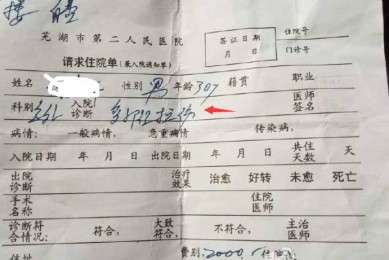 芜湖市第二人民医院
签证日期 住院号
请求住院单(兼入院通知单)
月 日 门诊号
姓名 性别 男 年龄 30岁 籍贯 职业
科别 入院诊断 医师签名
病情: 一般病情, 急重病情 传染病,
入院日期 年 月 日 出院日期 年 月 日 共住天数 天
出院诊断 治疗效果 治愈 好转 未愈 死亡
手术名称 住院医师
诊断符合情况: 符合, 大致符合, 不符合, 主治医师
住址 费别: 2000